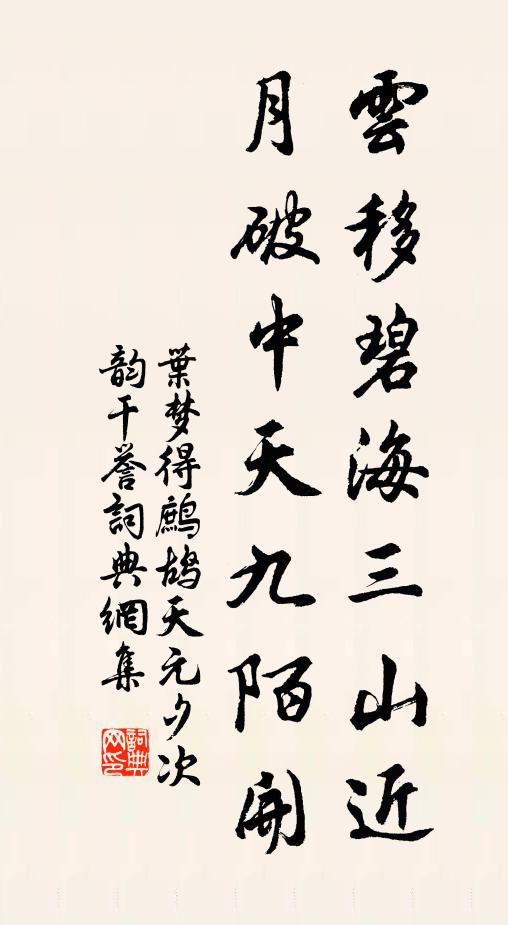 雲移碧海三山近
月破中天九陌開
葉梦得鷓鴣天元夕次
韵干譽詞典網集
詞典网印